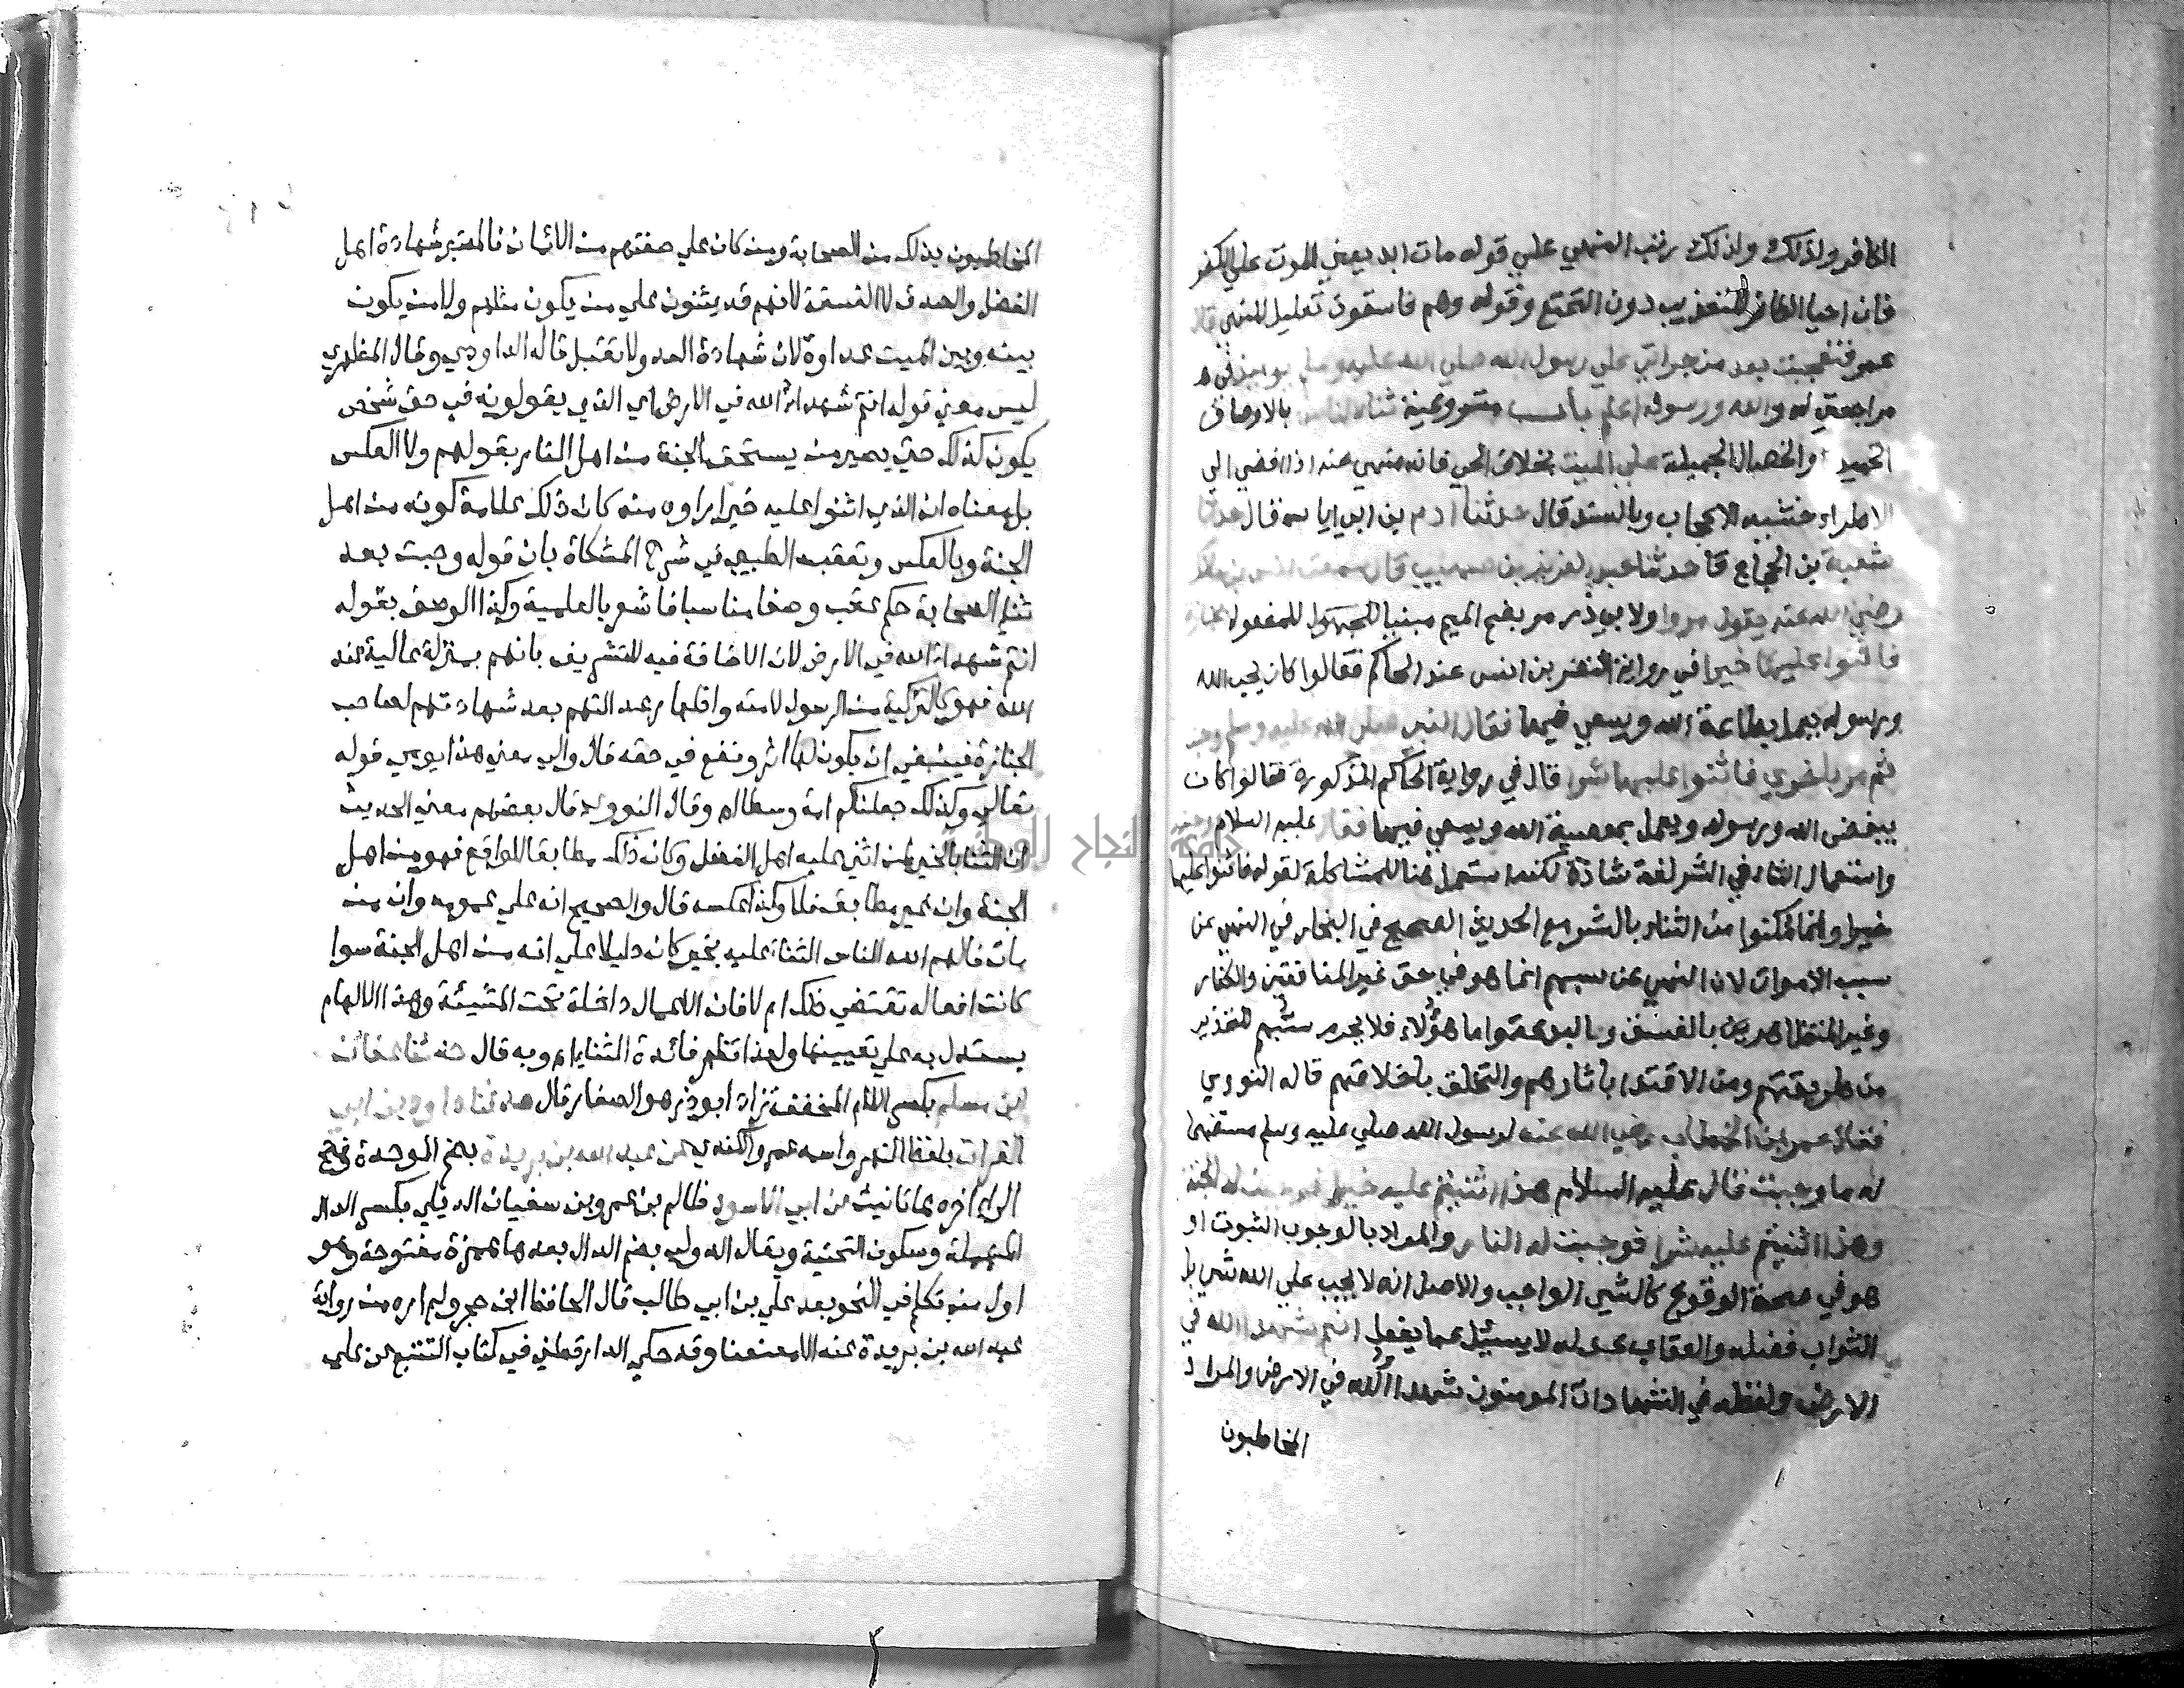 الكافر ولذلك ولذلك رتب النهي علي قوله مات ابد يعني الموت علي الكفر
فان احيا الكافر للتعذيب دون التمتع وقوله وهم فاسقون تعليل للنهي قال
عمر فتعجبت بعد من جراتي علي رسول الله صلي الله عليه وسلم يوميذ في
مراجعتي له والله ورسوله اعلم باب مشروعية ثناء الناس بالاوصاف
الحميدة والخصال الجميلة علي الميت بخلاف الحي فانه منهي عنه اذا افضي الي
الاطراء خشية الاعجاب وبالسند قال حدثنا ادم بن ابي اياس قال حدثنا
شعبة بن الحجاج قا حدثنا عبد العزيز بن صهيب قال سمعت انس بن مالك
رضي الله عنه يقول مروا ولابي ذر مر بضم الميم مبنيا للمجهول للمفعول بجنازة
فاثنوا عليها خيرا في رواية النضر بن انس عند الحاكم فقالوا كان يحب الله
ورسوله يعمل بطاعة الله ويسعي فيها فقال النبي صلي الله عليه وسلم وجبت
ثم مر باخري فاثنوا عليها شرا قال في رواية الحاكم المذكورة فقالوا كان
يبغض الله ورسوله ويعمل بمعصية الله ويسعي فيها فقال عليه السلام وجبت
واستعمال الثناء في الشر لغة شاذة لكنه استعمل هنا للمشاكلة لقوله فاثنوا عليها
خيرا وانما مكنوا من الثناء بالشر مع الحديث الصحيح في البخاري في النهي عن
سبب الاموات لان النهي عن سبهم انما هو في حق غير المنافقين والكفار
وغير المتظاهرين بالفسق وبالبدعة واما هؤلاء فلا يحرم سبهم للتحذير
من طريقتهم ومن الاقتداء باثارهم والتخلق باخلاقهم قاله النووي
فقال عمر ابن الخطاب رضي الله عنه لرسول الله صلي عليه وسلم مستفهما
له ما وجبت قال عليه السلام هذا اثنيتم عليه خيرا فوجبت له الجنة
وهذا اثنيتم عليه شرا فوجبت له النار والمراد بالوجوب الثبوت او
هو في صحة الوقوع كالشي الواجب والاصل انه لا يجب علي الله شي بل
الثواب فضله والعقاب عدله لا يسئل عما يفعل انتم شهداء الله في
الارض ولفظه في الشهادات المومنون شهداء الله في الارض والمراد
المخاطبون
المخاطبون بذلك من الصحابة ومن كان علي صفتهم من الايمان فالمعتبر شهادة اهل
الفضل والصدق لا الفسقة لانهم قد يثنون علي من يكون مثلهم ولا من يكون
بينه وبين الميت عداوة لان شهادة العدو لا تقبل قاله الداودي وقال المظهري
ليس معني قوله انتم شهداء الله في الارض اي الذي يقولونه في حق شخص
يكون كذلك حتي يصير من يستحق الجنة من اهل النار بقولهم ولا العكس
بل معناه ان الذي اثنوا عليه خيرا راوه منه كان ذلك علامة كونه من اهل
الجنة وبالعكس وتعقبه الطيبي في شرح المشكاة بان قوله وجبت بعد
ثناء الصحابة حكم عقب وصفا مناسبا فاشعر بالعلمية وكذا الوصف بقوله
انتم شهداء الله في الارض لان الاضافة فيه للتشريف بانهم بمنزلة عالية عند
الله فهو كالتزكية من الرسول لامته واظهار عدالتهم بعد شهادتهم لصاحب
الجنازة فينبغي ان يكون لها اثر ونفع في حقه قال والي معني هذا يومي قوله
تعالي وكذلك جعلناكم امة وسطا اه وقال النووي قال بعضهم معني الحديث
ان الثنا بالخير لمن اثني عليه اهل الفضل وكان ذلك مطابقا للواقع فهو من اهل
الجنة وان غير مطابق فلا وكذا عكسه قال والصحيح انه علي عمومه وان من
مات فالهم الله الناس الثناء عليه بخير كان دليلا علي انه من اهل الجنة سوا
كانت افعاله تقتضي ذلك ام لا فان الاعمال داخلة تحت المشيئة وهذا الالهام
يستدل به علي تعيينها ولهذا تظهر فائدة الثناء اه وبه قال حدثنا عفان
ابن مسلم بكسر اللام المخففة زاد ابو ذر هو الصفار قال حدثنا داود بن ابي
الفرات بلفظ النهر واسمه عمرو الكندي عن عبد الله بن بريدة بضم الموحدة وفتح
الراء اخره ها تانيث عن ابي الاسود ظالم بن عمرو بن سفيان الديلي بكسر الدال
المهملة وسكون التحتية ويقال الدولي بضم الدال بعدها همزة مفتوحة وهو
اول من تكلم في النحو بعد علي بن ابي طالب قال الحافظ ابن حجر ولم اره من رواية
عبد الله بن بريدة عنه الا معنعنا وقد حكي الدارقطني في كتاب التتبع عن علي
جامعة النجاح الوطنية